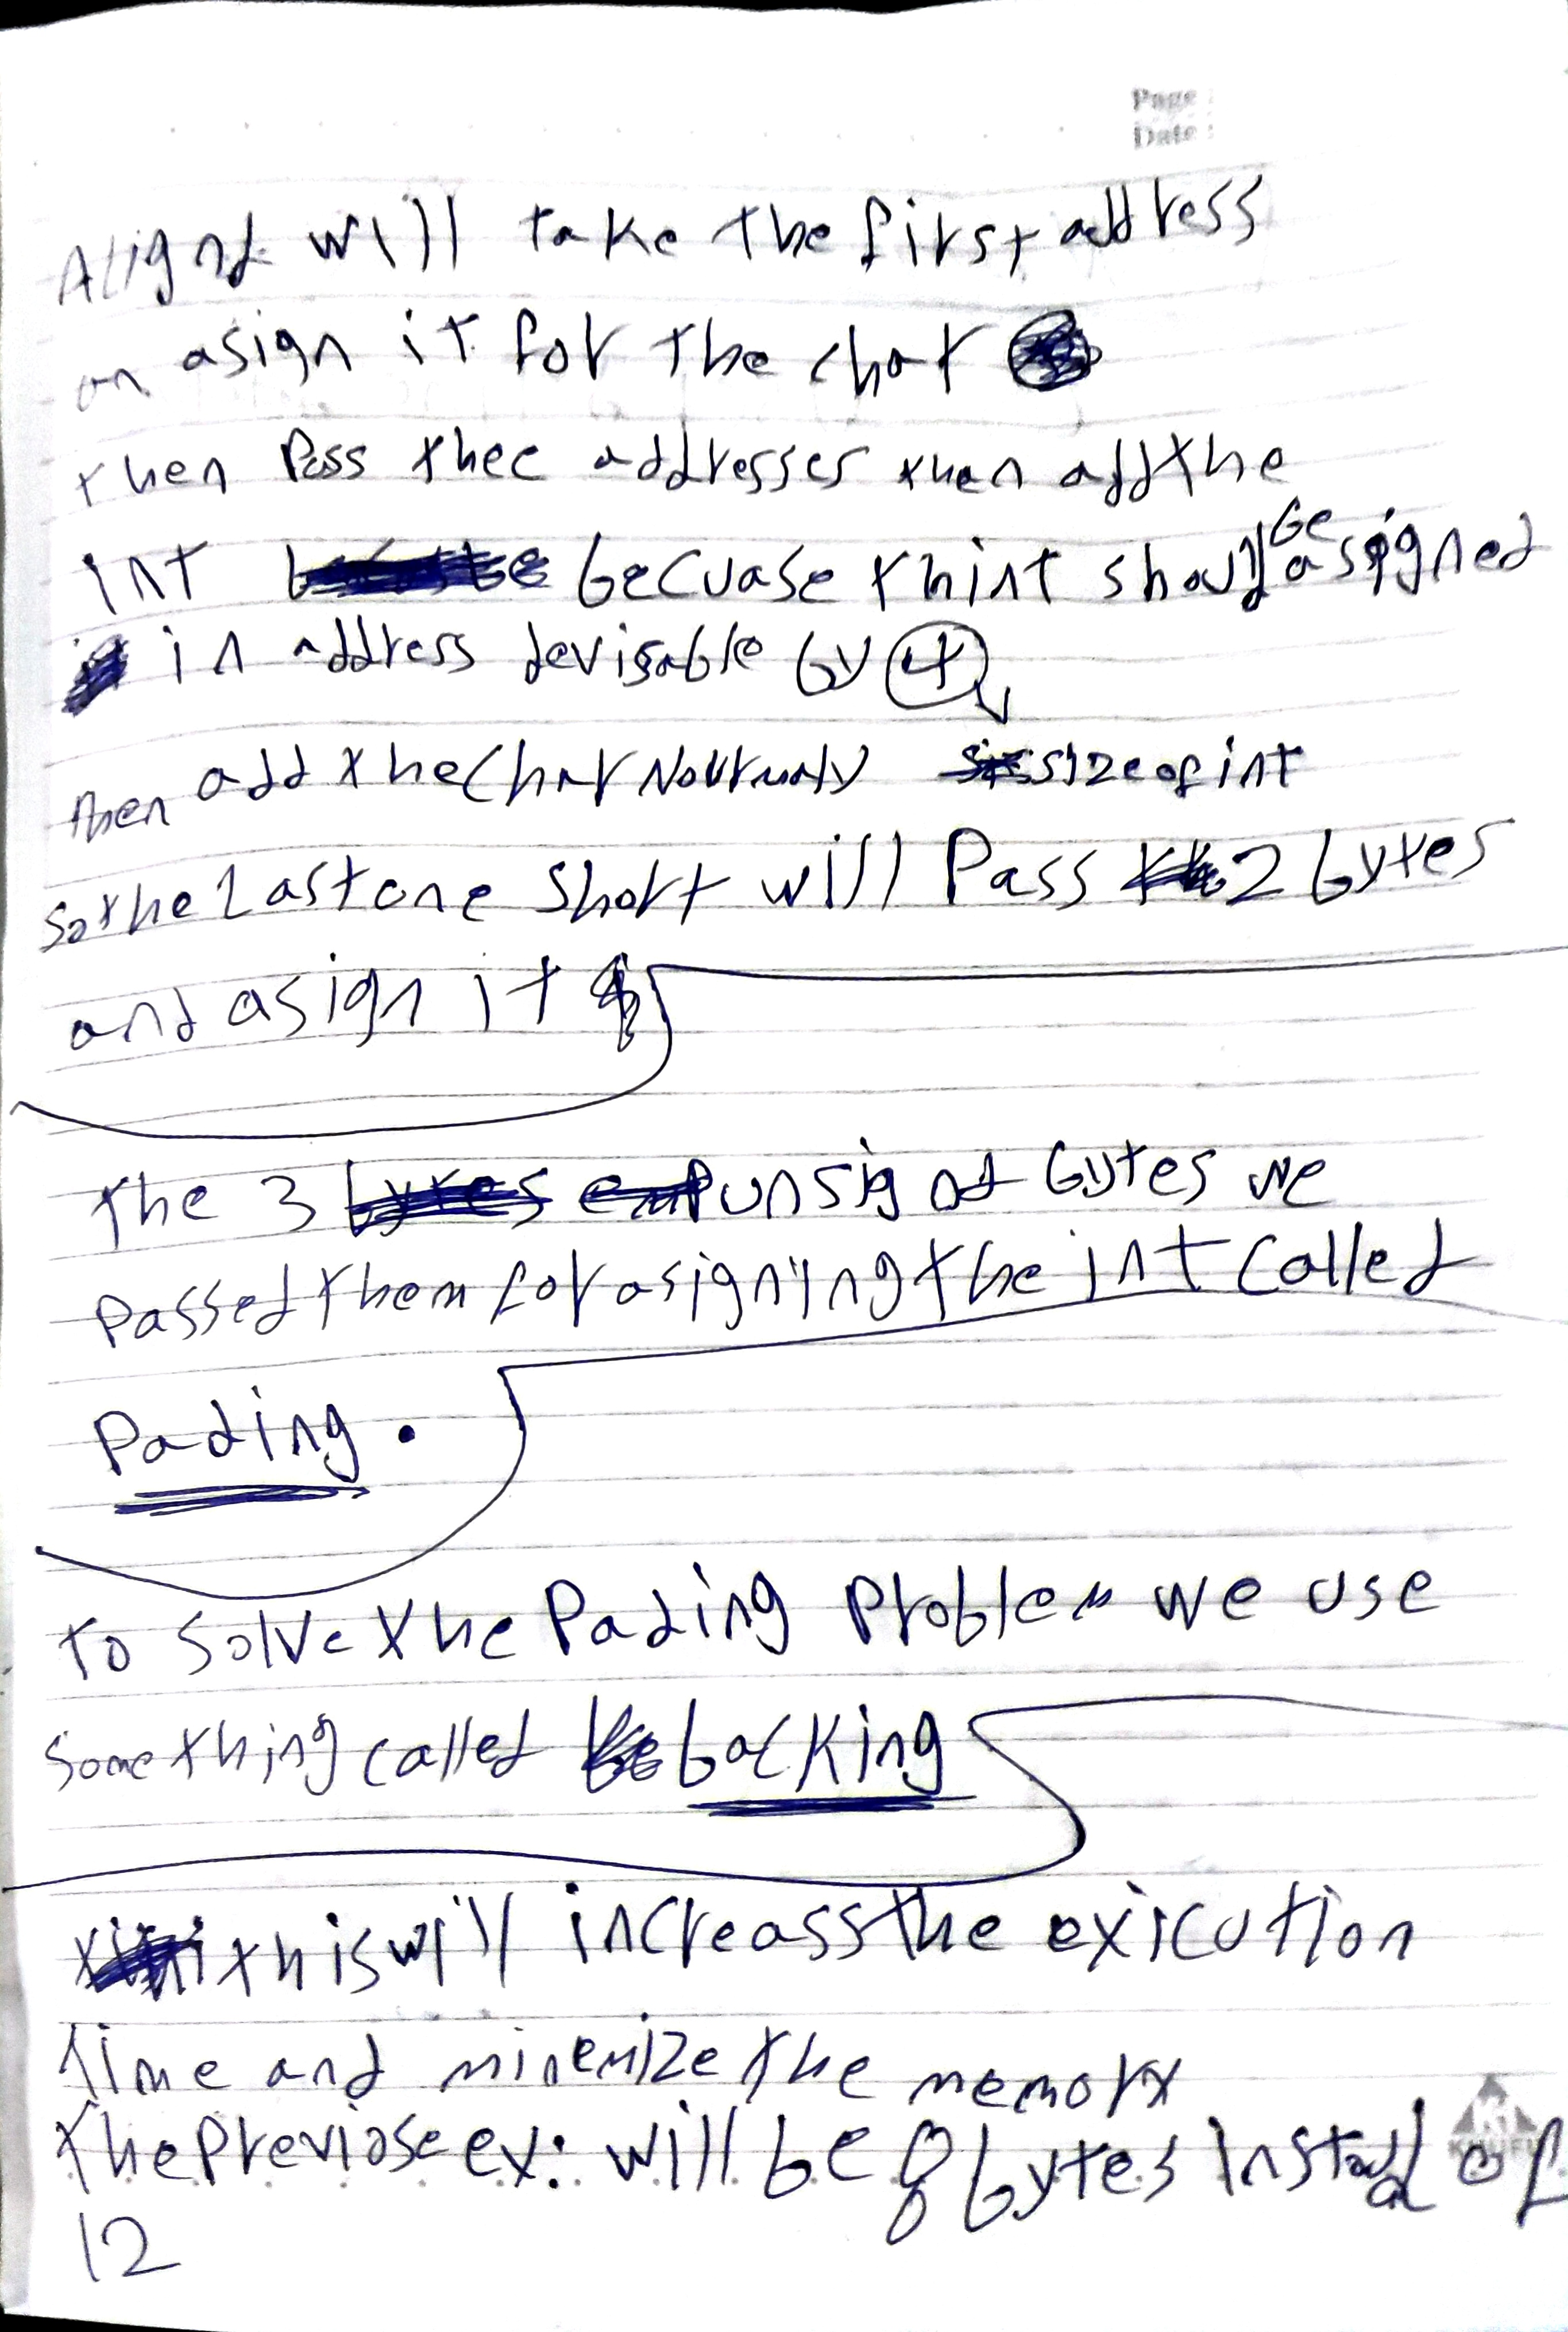 Page :
Date :
Alignd will take the first address
an asign it for the char
then Pass thee addresses then add the
int becuase th int should be asigned
in address devisable by 4
then add the char Nourmaly size of int
so the Last one short will Pass 2 bytes
and asign it
The 3 unsignd bytes we
passed them for asigning the int called
Pading.
to solve the Pading Problem we use
Something called backing
this will increass the exicution
time and minemize the memory
the previose ex: will be 8 bytes instead of
12